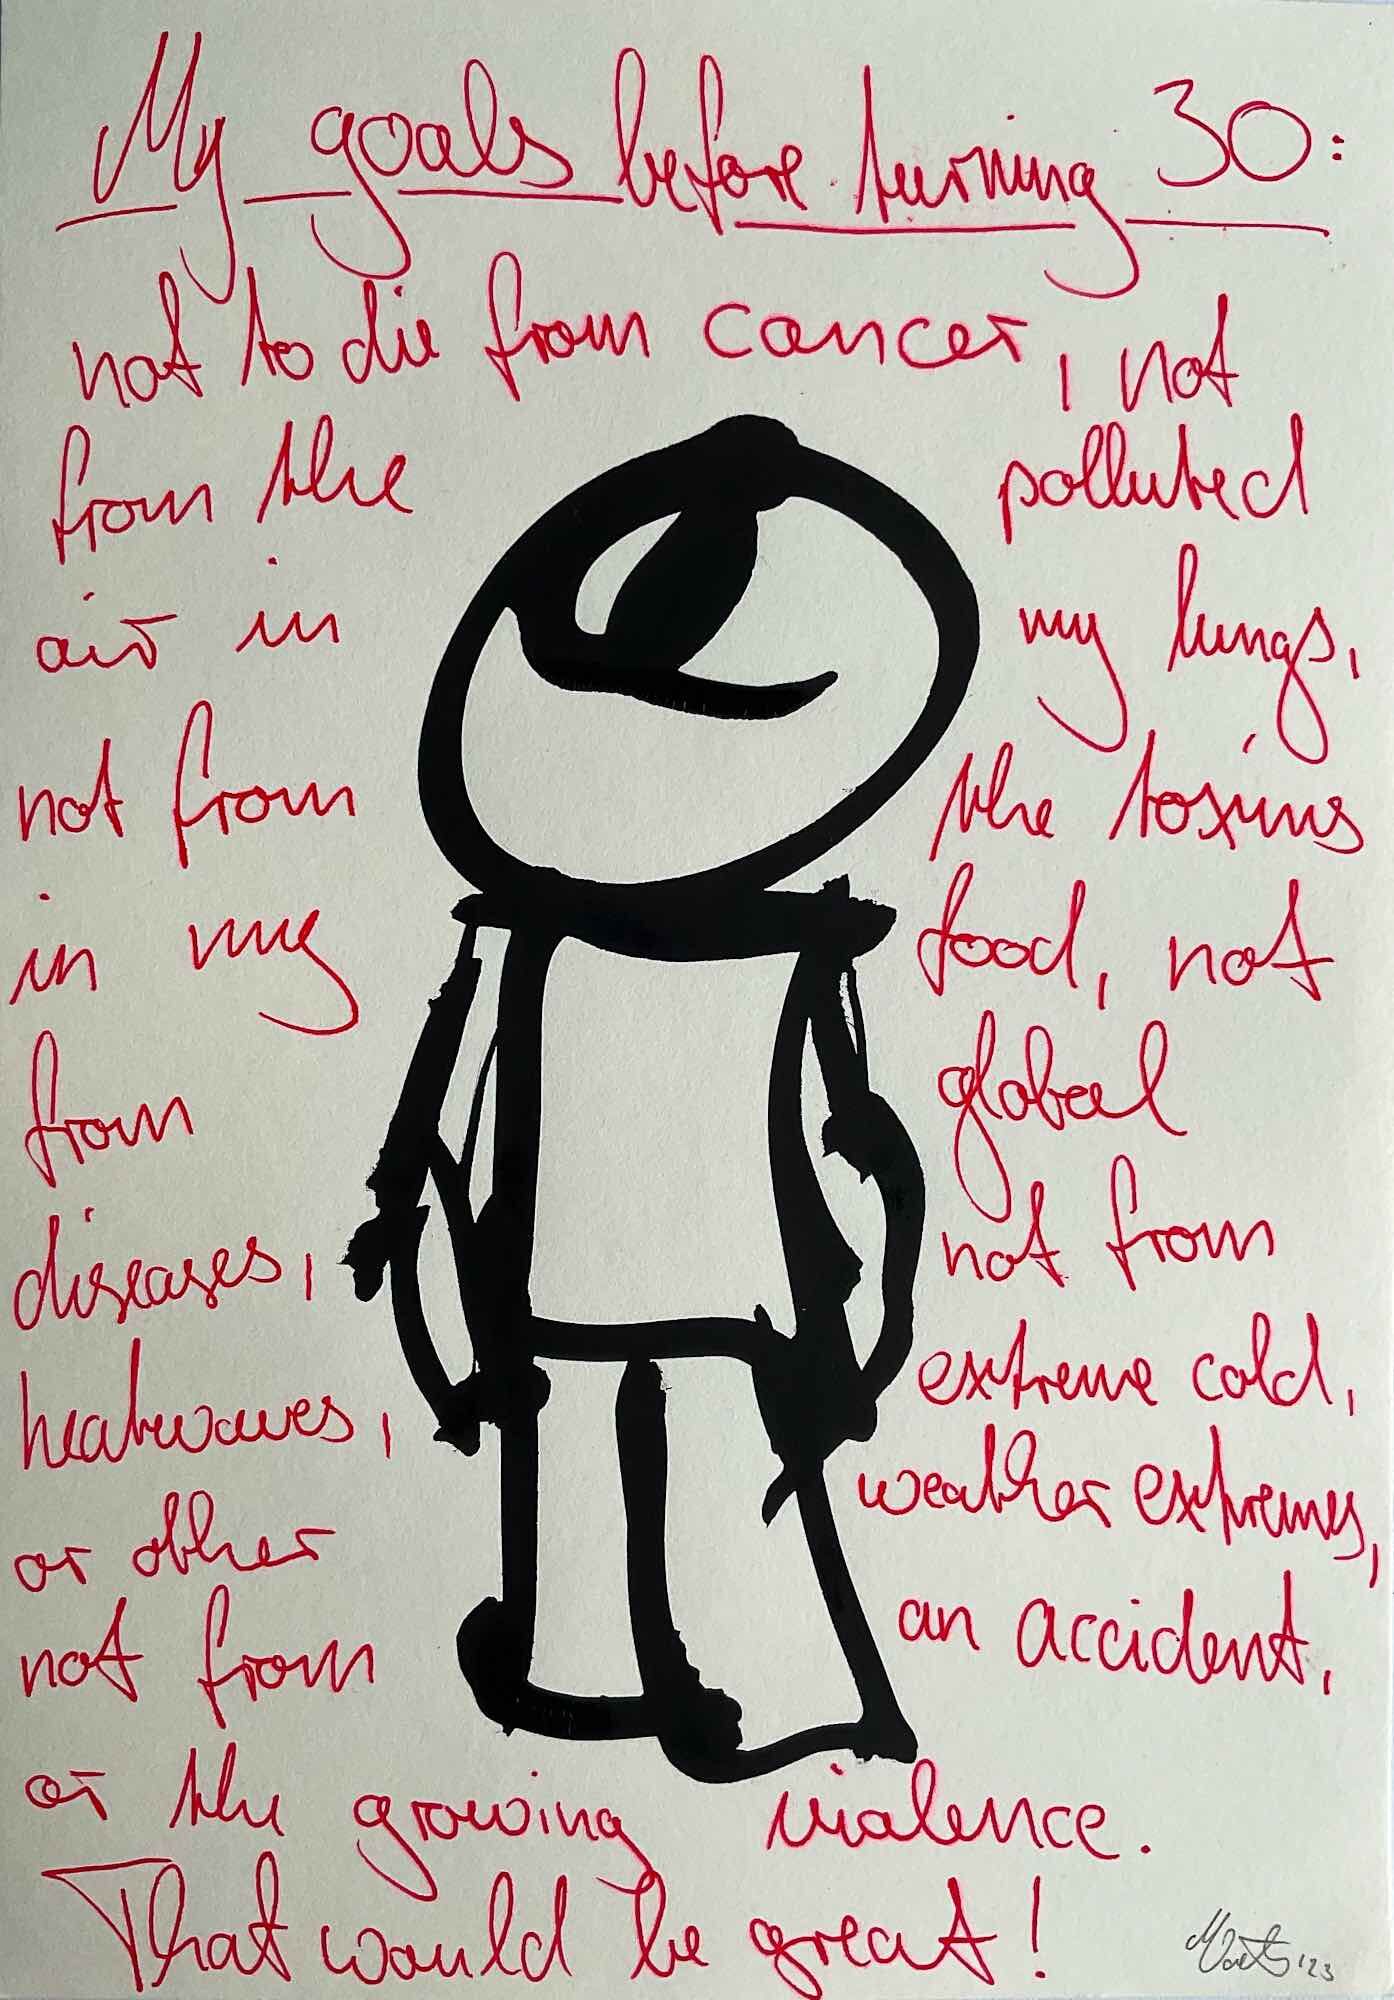 My goals before turning 30:
not to die from cancer, not
from the polluted
air in my lungs,
not from the toxins
in my food, not
from global
diseases, not from
heatwaves, extreme cold,
or other weather extremes,
not from an accident,
or the growing violence.
That would be great!
'23